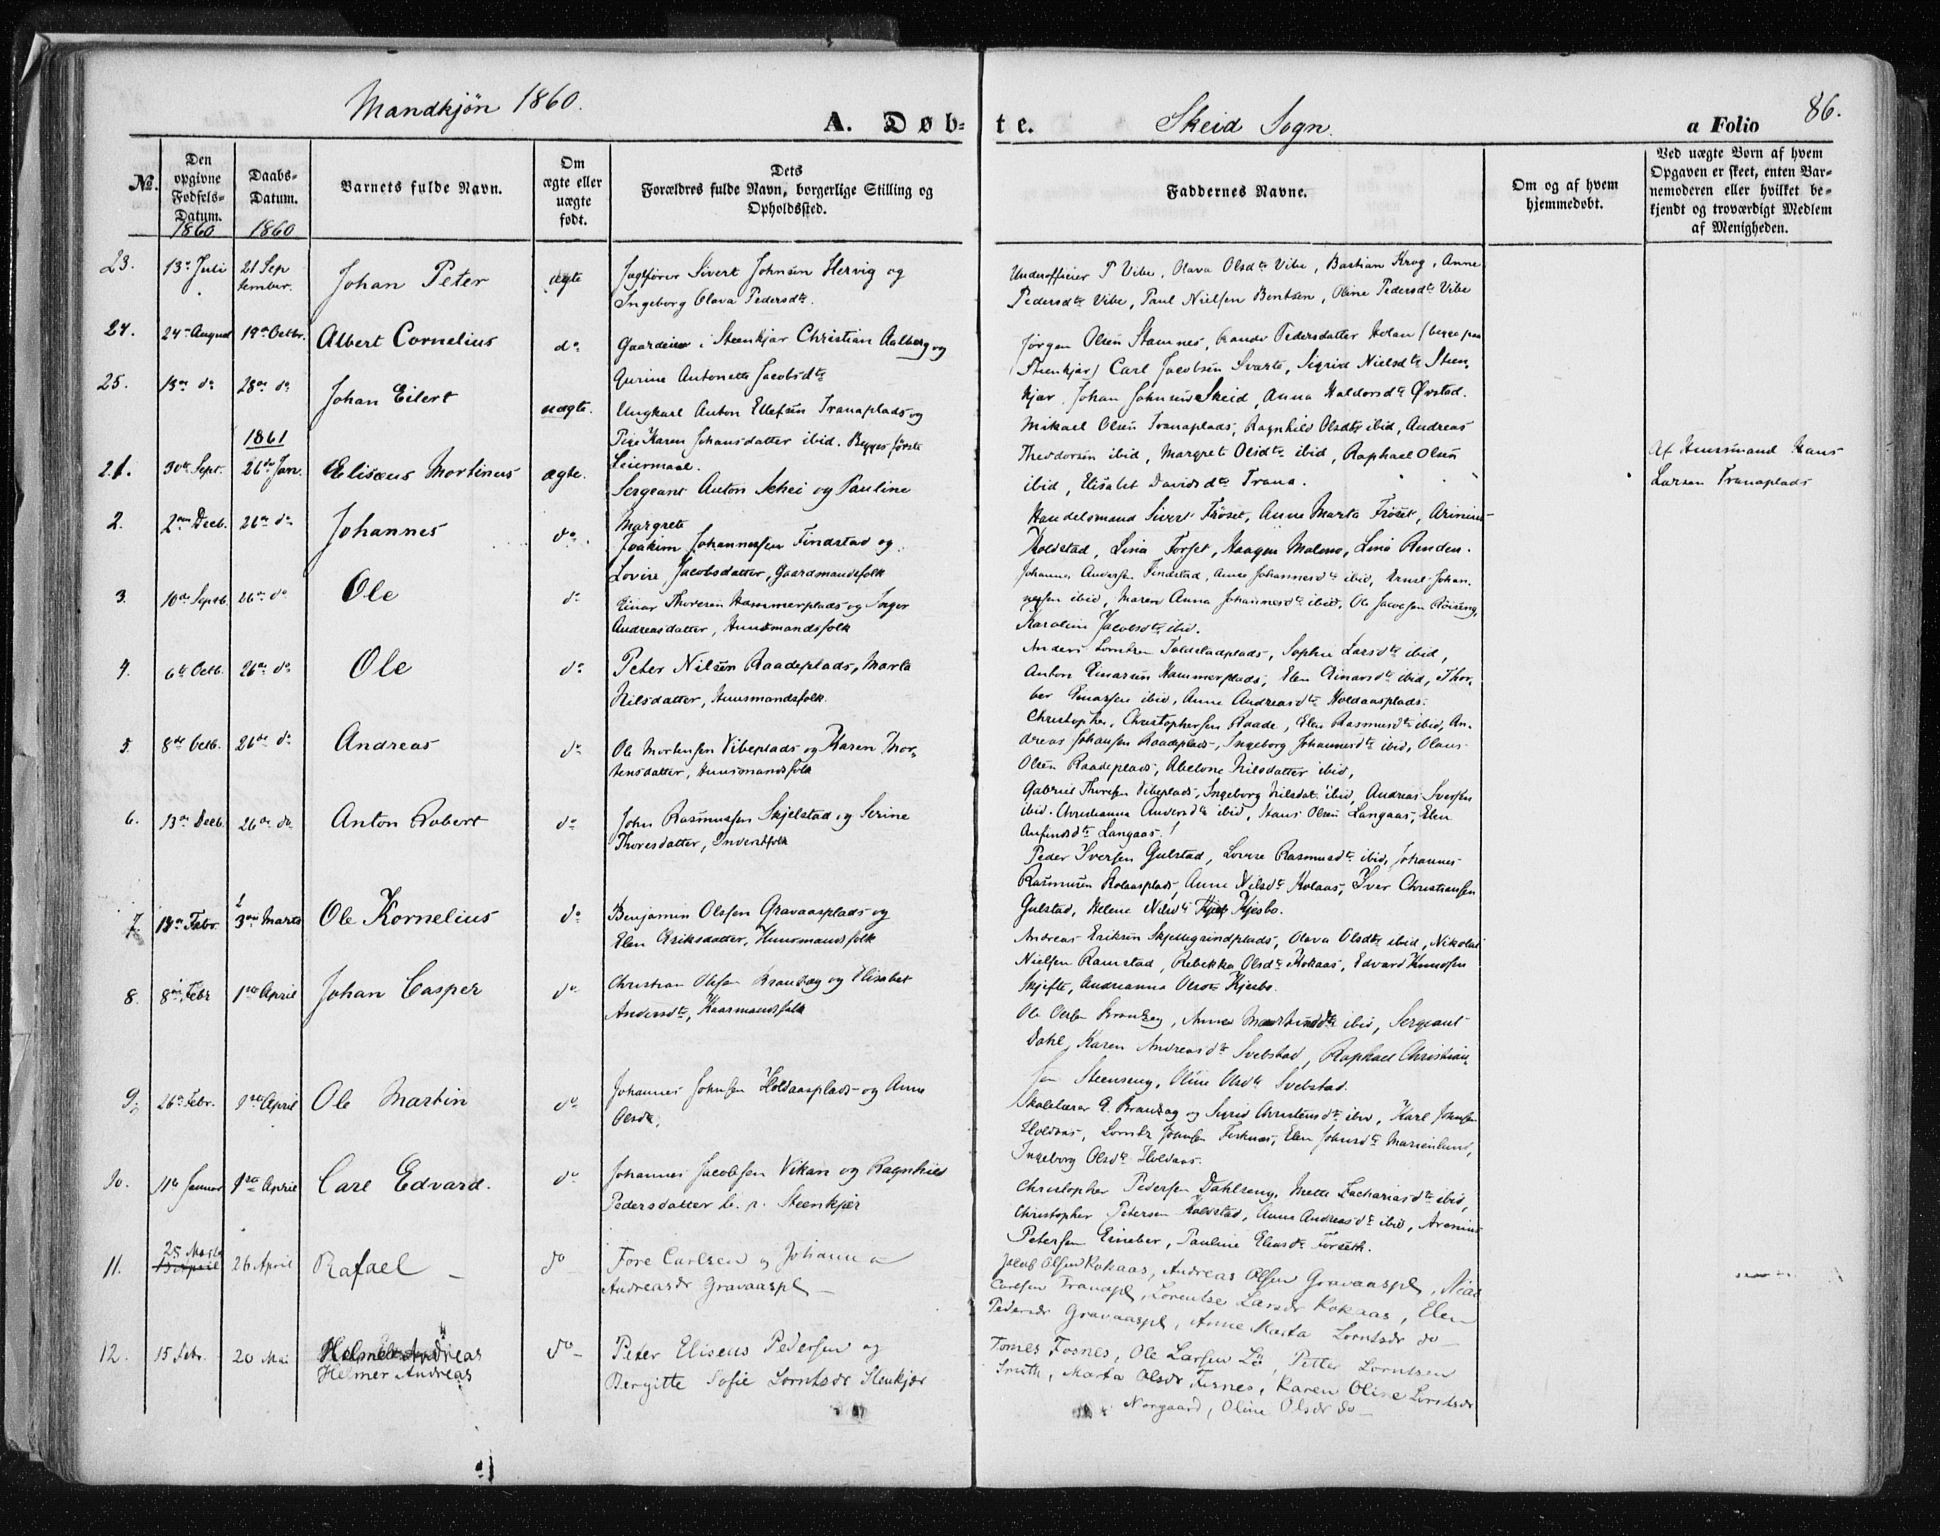 Mandkjøn 1860.
A. Døbte.
Skeid Sogn.
a Folio 86.
No.
Den opgivne Fødsels-Datum. 1860
Daabs-Datum. 1860
Barnets fulde Navn.
Om ægte eller uægte født.
Dets Forældres fulde Navn, borgerlige Stilling og Opholdssted.
Faddernes Navne.
Om og af hvem hjemmedøbt.
Ved uægte Børn af hvem Opgaven er skeet, enten Barnemoderen eller hvilket bekjendt og troværdigt Medlem af Menigheden.
23. 13de Juli 21 September. Johan Peter ægte
Jagtfører Sivert Johnsen Hervig og
Ingeborg Olava Pedersdtr.
Underofficier P Vibe, Olava Olsdtr Vibe, Bastian Krog, Anne
Pedersdtr Vibe, Paul Nielsen Bentsen, Oline Pedersdtr Vibe
24. 24de August 19de Octbr. Albert Cornelius do
Gaardeier i Steenkjær Christian Aalberg og
Gurine Antonette Jacobsdtr
Jørgen Olsen Stamnes, Pedersdatter Holan (begge paa
Steenkjær) Carl Jacobsen Svarte, Sigrid Nielsdtr Steen-
kjær, Johan Johnsen Skeid, Anna Haldorsdtr Øvstad.
25. 13de do 28de do Johan Eilert uægte.
Ungkarl Anton Ellefsen Tranaplads og
Pige Karen Johansdatter ibid. Begges første
Leiermaal.
Mikael Olsen Tranaplads, Ragnhild Olsdtr ibid, Andreas
Theodorsen ibid, Margret Olsdtr ibid, Raphael Olsen
ibid, Elisabet Davidsdtr Trana.
Af Huusmand Hans
Larsen Tranaplads
1861
1. 30te Sept. 26de Jan. Elisæus Mortinus ægte.
Sergeant Anton Schei og Pauline
Margrete
Handelsmand Sivert Frøset, Anne Marta Frøset, Arinius
Holdstad, Lina Forset, Haagen Moleno, Lina Renden.
2. 2den Decb. 26de do Johannes do
Joakim Johannessen Findstad og
Lovise Jacobsdatter, Gaardmandsfolk
Johannes Andersen Findstad, Anne Johannesdtr ibid, Johan-
nesen ibid, Maren Anna Johannesdtr ibid, Ole Jacobsen Røiseng,
Karoline Jacobsdtr ibid.
3. 10de Septb. 26de do Ole do
Einar Thoresen Hammerplads og Inger
Andreasdatter, Huusmandsfolk
Anders Lorntsen Foldstadplads, Sophie Larsdtr ibid,
Anton Einarsen Hammerplads, Elen Einarsdtr ibid, Thor-
ber Einarsen ibid, Anne Andreasdtr Holdaasplads.
4. 6te Octb. 26de do Ole do
Peter Nilsen Raadeplads, Marta
Nilsdatter, Huusmandsfolk.
Christopher Christophersen Raade, Elen Rasmusdtr ibid, An-
dreas Johansen Raadeplads, Ingeborg Johannesdtr ibid, Olaus
Olsen Raadeplads, Abelone Nilsdatter ibid,
5. 8de Octb. 26de do Andreas do
Ole Mortensen Vibeplads og Karen Mor-
tensdatter, Huusmandsfolk
Gabriel Thoresen Vibeplads, Ingeborg Nilsdat. ibid, Andreas Iversen
ibid. Christianna Andersdtr ibid, Hans Olsen Langaas, Elen
Anfindsdtr Langaas.
6. 13de Decb. 26de do Anton Robert do
John Rasmussen Skjelstad og Serine
Thoresdatter, Inderstfolk
Peder Iversen Gulstad, Lovise Rasmusdtr ibid, Johannes
Rasmusen Holaasplads, Anne Nilsdtr Holaas, Iver Christiansen
Gulstad, Helene Nilsdtr Kjesbo.
7. 13de Febr. 3die Marts Ole Kornelius do
Benjamin Olsen Gravaasplads og
Elen Eriksdatter, Huusmandsfolk
Andreas Eriksen Skjellegrindplads, Olava Olsdtr ibid, Nikolai
Nielsen Ramstad, Rebekka Olsdtr Kokaas, Edvard Knudsen
Skjefte, Andrianna Olsdtr Kjesbo.
8. 8de Febr 1ste April Johan Casper do
Christian Olsen Brandsæg og Elisabet
Andersdtr, Gaarmandsfolk
Ole Olsen Brandsæg, Anne Martinsdtr ibid, Sergeant
Dahl, Karen Andreasdtr Svebstad, Raphael Christian-
sen Steenseng, Oline Olsdtr Svebstad.
9. 26de Febr. 1ste April Ole Martin do
Johannes Johnsen Holdaasplads og Anne
Olsdtr,
Skolelærer G. Brandsæg og Sigrid Christensdtr ibid, Karl Johnsen
Holdaas, Lornts Johnsen Fisknes, Elen Johnsdtr Marienlund,
Ingeborg Olsdtr Holdaas.
10. 11te Januar 1ste April Carl Edvard. do
Johannes Jacobsen Vikan og Ragnhild
Pedersdatter b. p. Steenkjær
Christopher Pedersen Dahlseng, Mette Zachariasdtr ibid,
Christopher Petersen Holdstad, Anne Andreasdtr ibid, Arenius
Petersen Eineber, Pauline Eliasdtr Forseth.
11. 25 Marts 26 April Rafael do
Tore Carlsen og Johanna
Andreasdr Gravaaspl
Jakob Olsen Kokaas, Andreas Olsen Gravaaspl,
Carlsen Tranapl, Lorentse Larsdr Kokaas, Elen
Pedersdr Gravaaspl, Anne Marta Lorntsdr do
12. 15 Febr. 20 Mai Helmer Andreas do
Helmer Andreas
Peter Eliseus Pedersen og
Bergitte Sofie Lorntsdr Stenkjær
Tomes Fosnes, Ole Larsen Lø, Petter Lorntsen
Smith, Marta Olsdr Fosnes, Karen Oline Lorntsdr
Norgaard, Oline Olsdr do